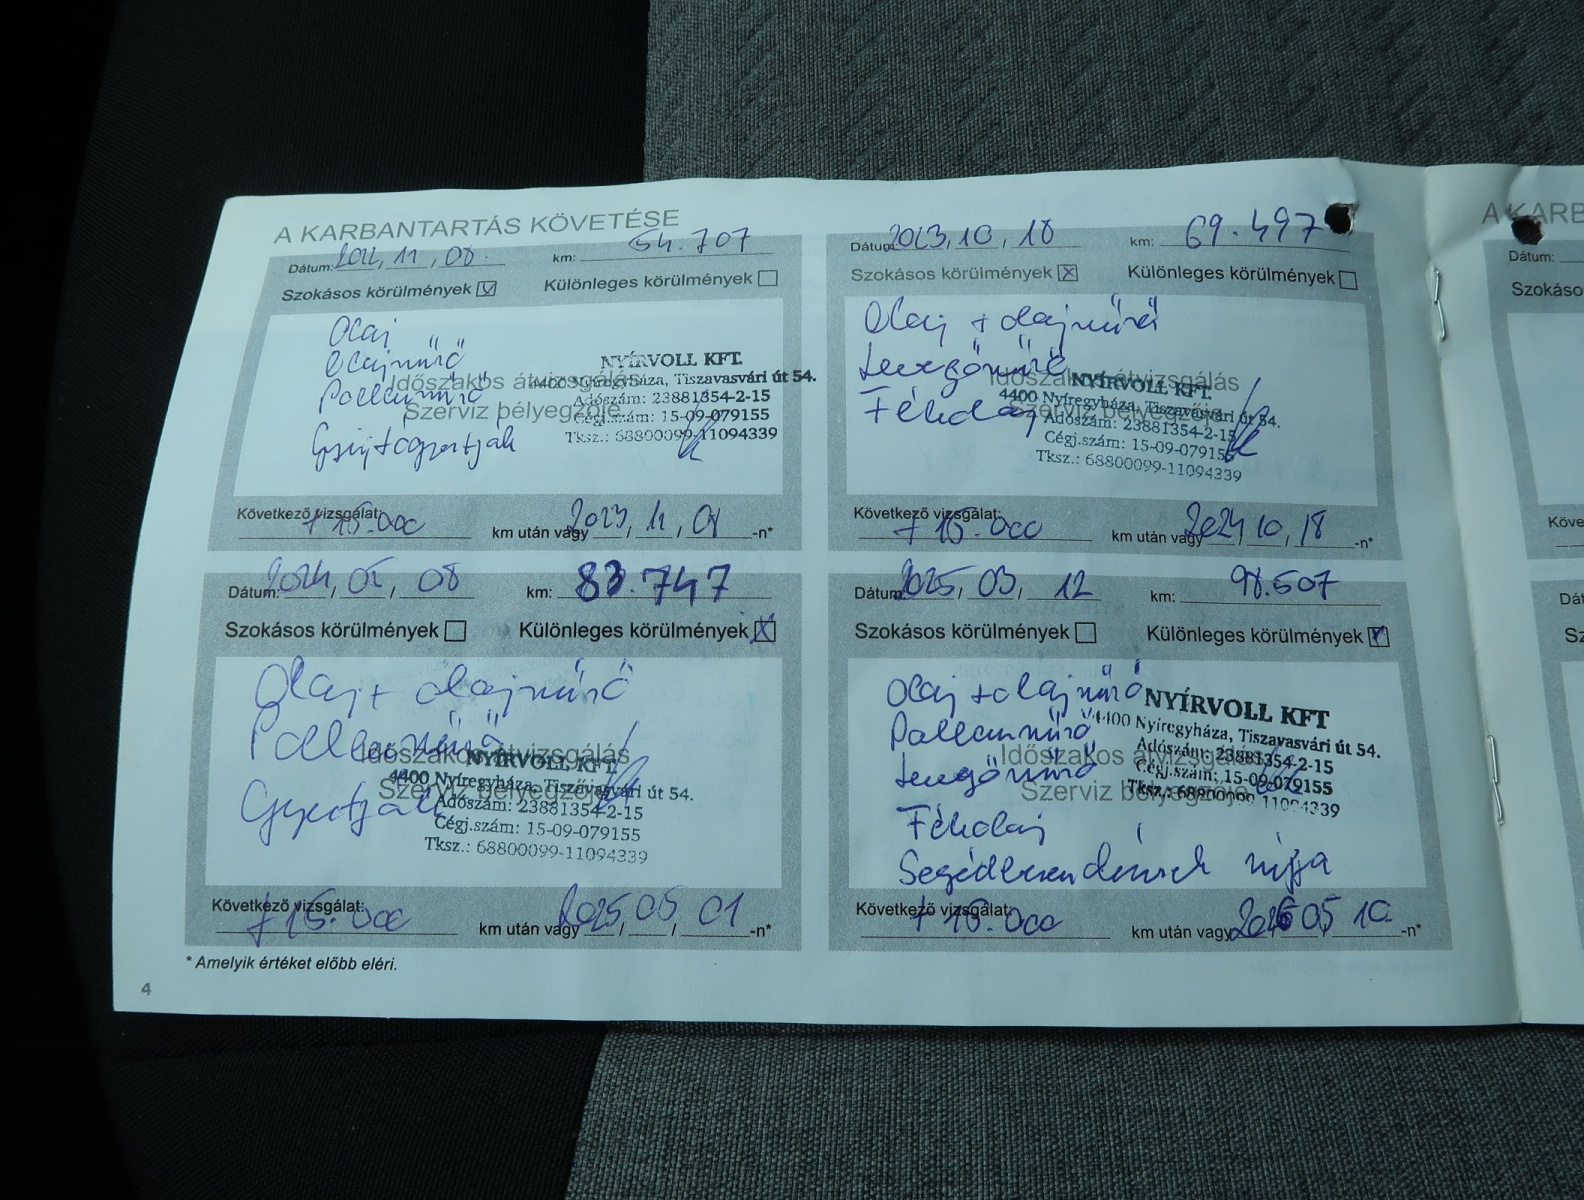 A KARBANTARTÁS KÖVETÉSE
Dátum: 2022, 11, 08. km: 54.707
Szokásos körülmények Különleges körülmények
Olaj
Olajszűrő
Pollenszűrő
Gyújtógyertyák
Időszakos átvizsgálás
Szerviz bélyegzője
NYÍRVOLL KFT.
4400 Nyíregyháza, Tiszavasvári út 54.
Adószám: 23881354-2-15
Cégj.szám: 15-09-079155
Tksz.: 68800099-11094339
Következő vizsgálat: + 15.000 km után vagy 2023, 11, 08 -n*
Dátum: 2023, 10, 18 km: 69.497
Szokásos körülmények Különleges körülmények
Olaj + olajszűrő
Levegőszűrő
Fékolaj
Időszakos átvizsgálás
Szerviz bélyegzője
NYÍRVOLL KFT.
4400 Nyíregyháza, Tiszavasvári út 54.
Adószám: 23881354-2-15
Cégj.szám: 15-09-079155
Tksz.: 68800099-11094339
Következő vizsgálat: + 15.000 km után vagy 2024, 10, 18 -n*
Dátum: 2024, 05, 08 km: 83.747
Szokásos körülmények Különleges körülmények
Olaj + olajszűrő
Pollenszűrő
Gyertyák
Időszakos átvizsgálás
Szerviz bélyegzője
NYÍRVOLL KFT.
4400 Nyíregyháza, Tiszavasvári út 54.
Adószám: 23881354-2-15
Cégj.szám: 15-09-079155
Tksz.: 68800099-11094339
Következő vizsgálat: + 15.000 km után vagy 2025, 05, 01 -n*
Dátum: 2025, 03, 12 km: 98.507
Szokásos körülmények Különleges körülmények
Olaj + olajszűrő
Pollenszűrő
Levegőszűrő
Fékolaj
Segédberendezések
Időszakos átvizsgálás
Szerviz bélyegzője
NYÍRVOLL KFT
4400 Nyíregyháza, Tiszavasvári út 54.
Adószám: 23881354-2-15
Cégj.szám: 15-09-079155
Tksz.: 68800099-11094339
Következő vizsgálat: + 15.000 km után vagy 2026 05 10. -n*
* Amelyik értéket előbb eléri.
4
A KARB
Dátum:
Szokáso
Köve
Dát
Sz